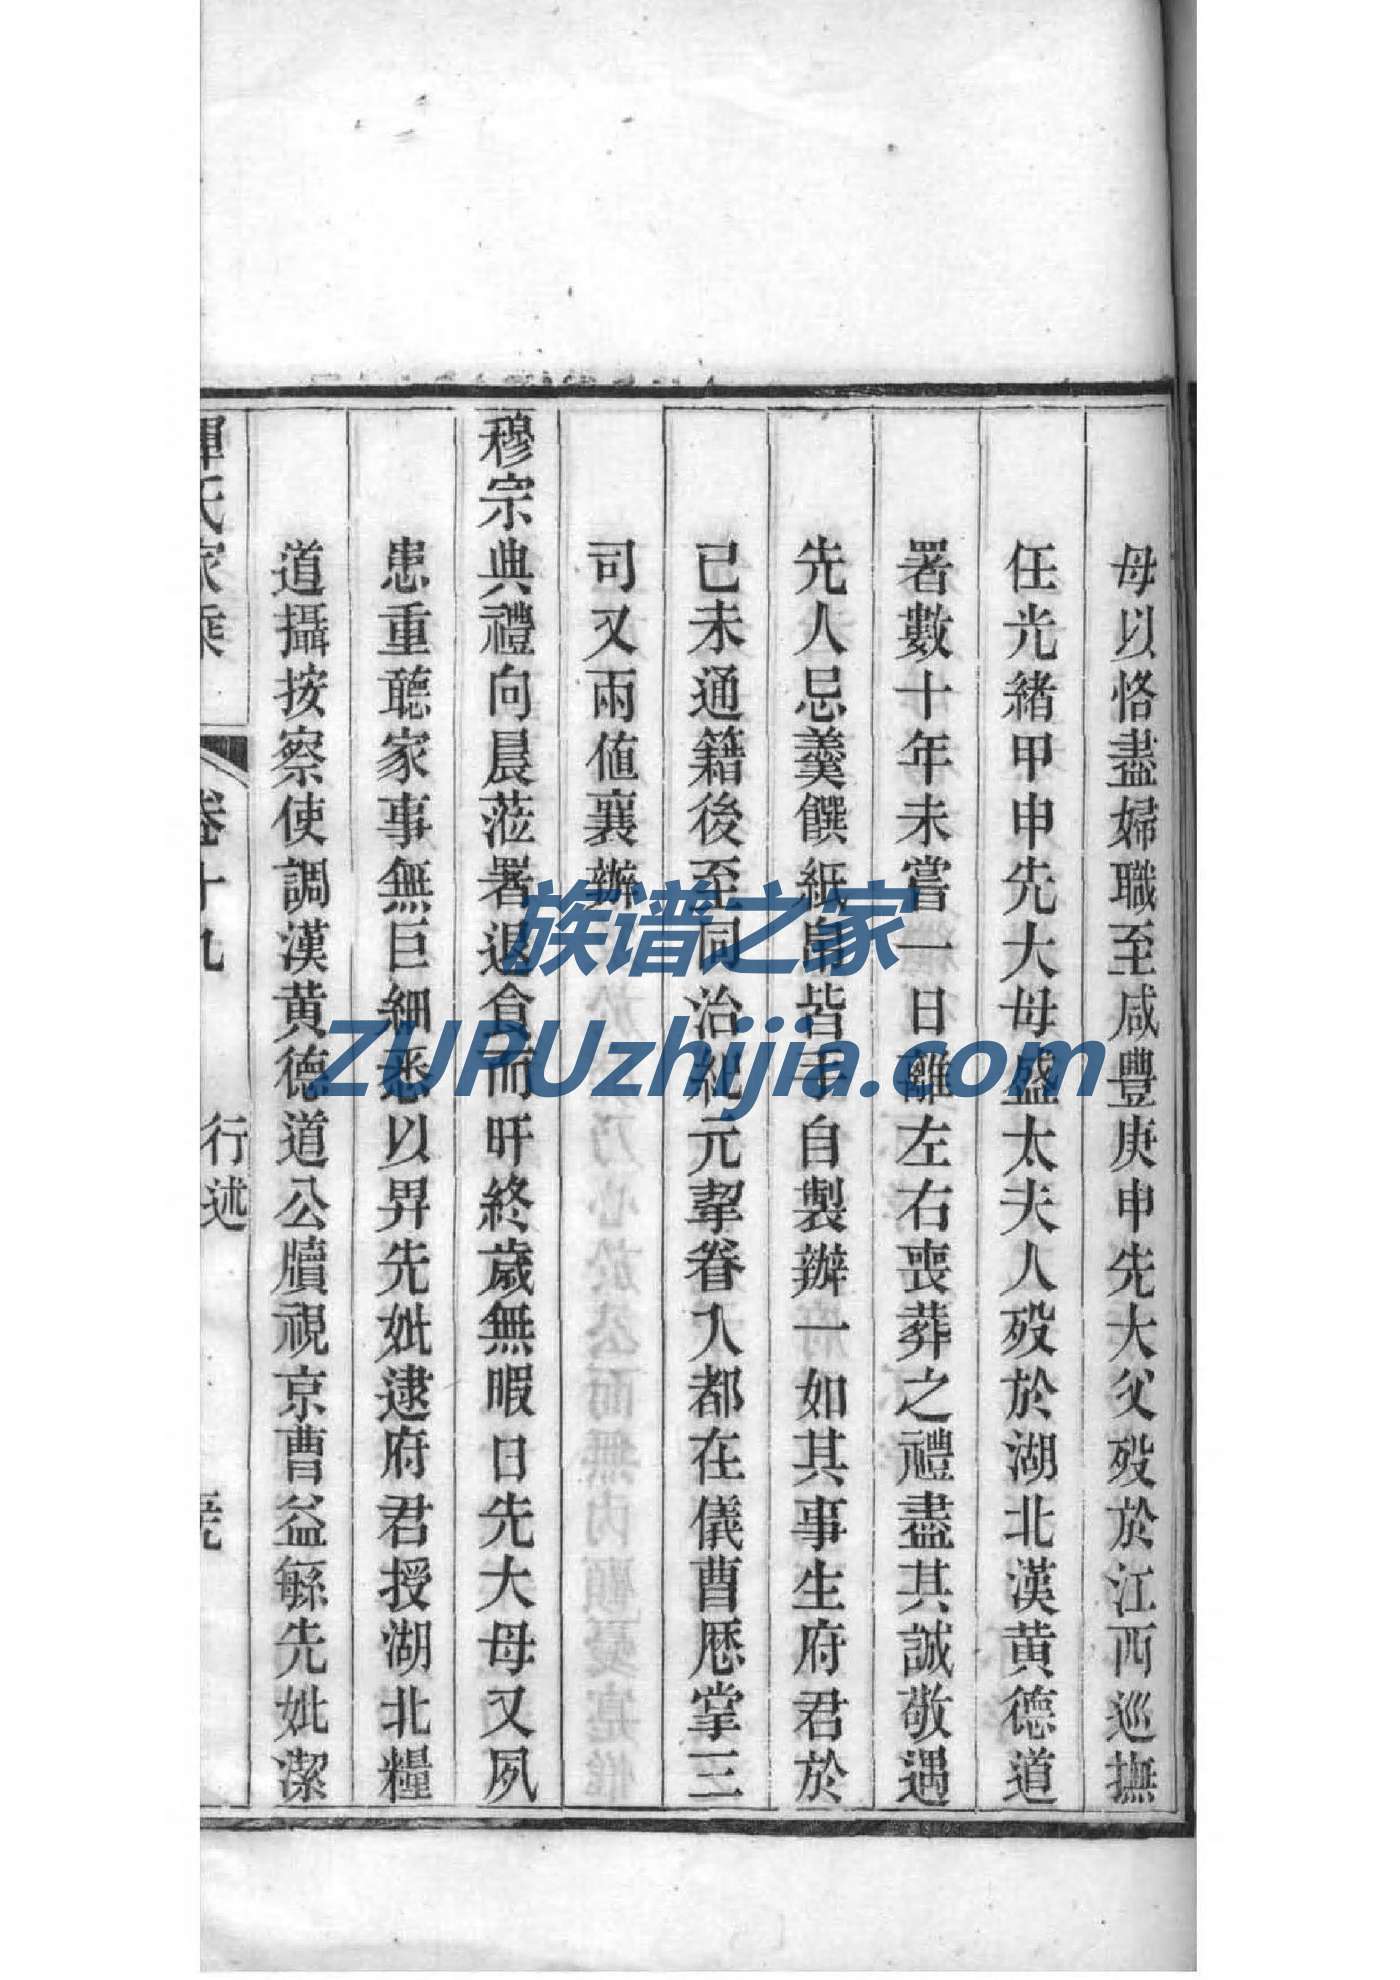 母以恪盡婦職至咸豐庚申先大父歿於江西巡撫
任光緒甲申先大母盛太夫人歿於湖北漢黄德道
署數十年未嘗一日離左右喪葬之禮盡其誠敬遇
先人忌羹饌紙帛皆手自製辦一如其事生府君於
己未通籍後至同治紀元挈眷入都在儀曹歴掌三
司又兩值襄辦
穆宗典禮向晨蒞署退食而旰終歲無暇日先大母又夙
患重聽家事無巨細悉以畀先妣逮府君授湖北糧
道攝按察使調漢黄德道公牘視京曹益緐先妣潔
惲氏家乘 卷十九 行述
族谱之家
ZUPUzhijia.com